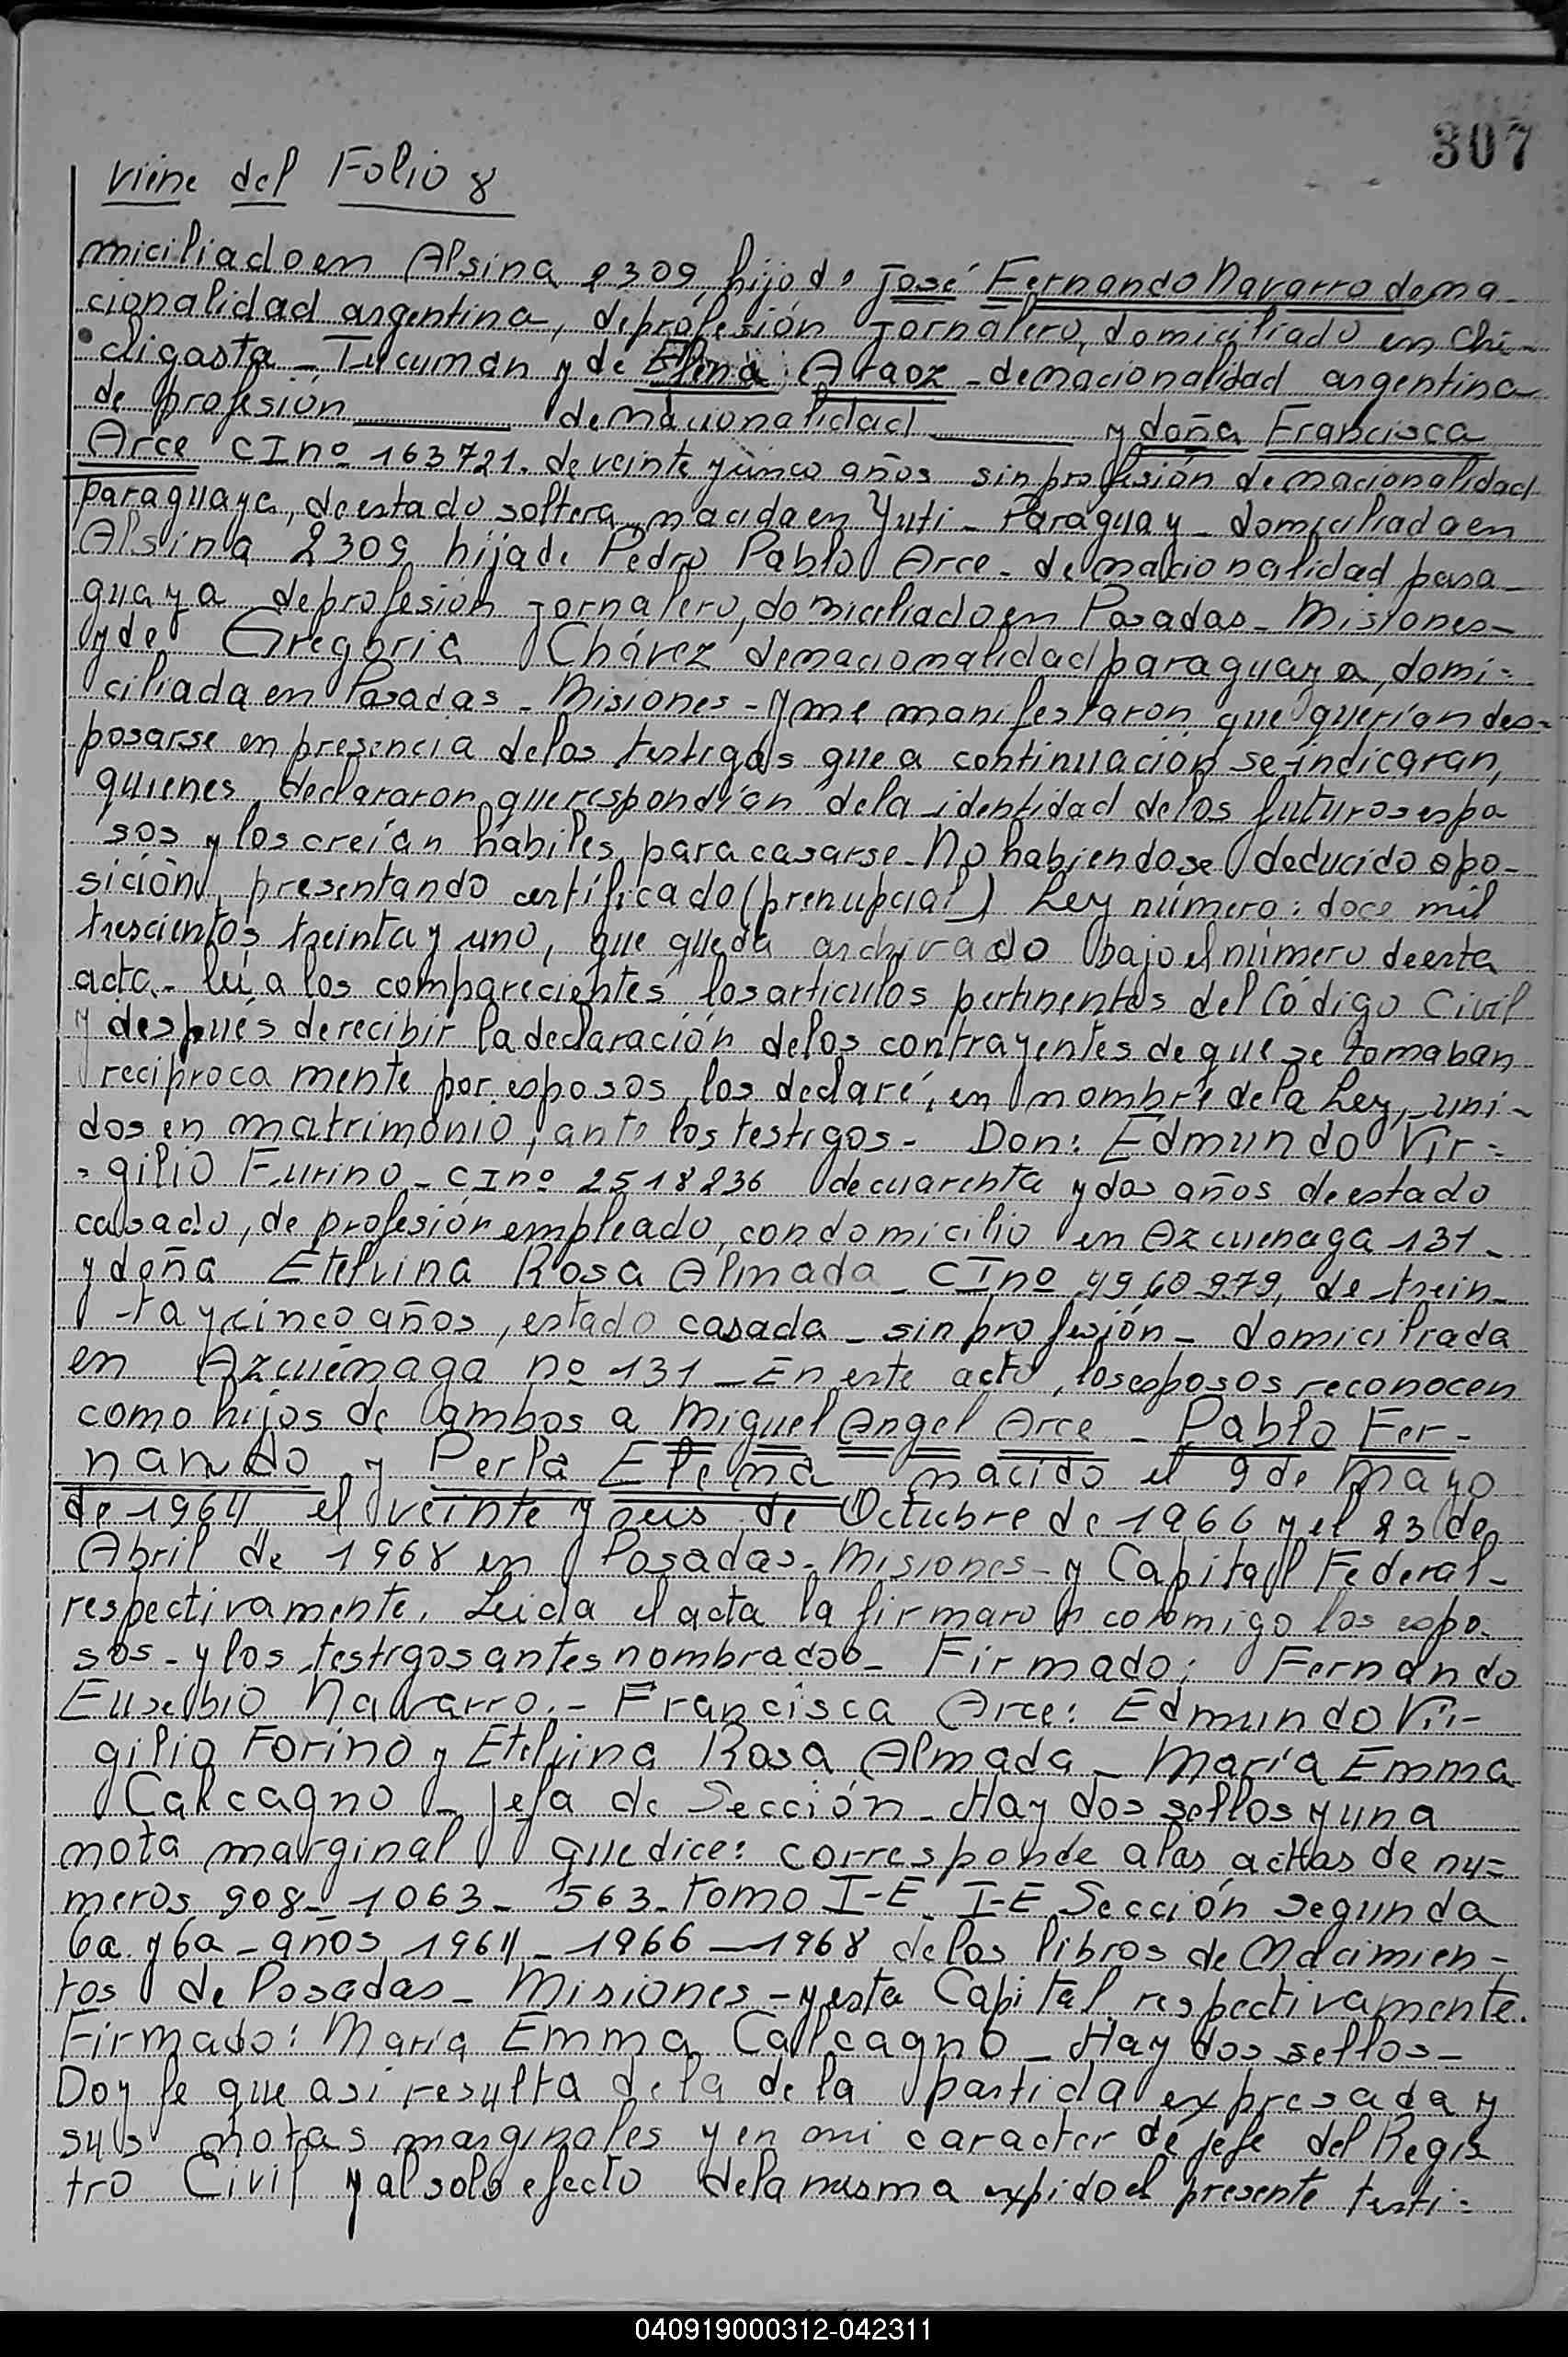 307
viene del Folio 8
miciliado en Alsina 2309, hijo de José Fernando Navarro de na-
cionalidad argentina, de profesión jornalero, domiciliado en Chi-
cligasta - Tucuman y de Elena Araoz - de nacionalidad argentina
de profesión ______ de nacionalidad ______ y doña Francisca
Arce CI nº 163721. de veinte y cinco años sin profesión de nacionalidad
paraguaya, de estado soltera, nacida en Yuti - Paraguay - domiciliada en
Alsina 2309 hija de Pedro Pablo Arce - de nacionalidad para-
guaya de profesión jornalero, domiciliado en Posadas - Misiones -
y de Gregoria Chávez de nacionalidad paraguaya, domi=
ciliada en Posadas - Misiones - y me manifestaron que querían des=
posarse en presencia de los testigos que a continuación se indicaran,
quienes declararon que respondían de la identidad de los futuros espo
sos y los creían hábiles para casarse - No habiendose deducido opo-
sición, presentando certificado (prenupcial) Ley número: doce mil
trescientos treinta y uno, que queda archivado bajo el número de esta
acta - leí a los comparecientes los articulos pertinentes del Código Civil
y después de recibir la declaración de los contrayentes de que se tomaban
reciproca mente por esposos, los declaré, en nombre de la Ley, uni-
dos en matrimonio, ante los testigos - Don: Edmundo Vir=
=gilio Furino - CI nº 2518236 de cuarenta y dos años de estado
casado, de profesión empleado, con domicilio en Azcuenaga 131 -
y doña Etelvina Rosa Almada - CI nº 4960979, de trein-
-ta y cinco años, estado casada - sin profesión - domiciliada
en Azcuénaga nº 131 - En este acto, los esposos reconocen
como hijos de ambos a Miguel Angel Arce - Pablo Fer-
nando y Perla Elena nacido el 9 de Mayo
de 1964 el veinte y seis de Octubre de 1966 y el 23 de
Abril de 1968 en Posadas - Misiones - y Capital Federal -
respectivamente. Leida el acta la firmaron conmigo los espo-
sos - y los testigos antes nombrados - Firmado: Fernando
Eusebio Navarro. - Francisca Arce: Edmundo Vir-
gilio Forino y Etelvina Rosa Almada - María Emma
Calcagno - jefa de Sección - Hay dos sellos y una
nota marginal que dice: corresponde a las actas de nú=
meros 908 - 1063 - 563 - tomo I-E I-E Sección segunda
6a y 6a - años 1964 - 1966 - 1968 de los libros de Nacimien-
tos de Posadas - Misiones - y esta Capital respectivamente.
Firmado: María Emma Calcagno - Hay dos sellos -
Doy fe que asi resulta de la de la partida expresada y
sus notas marginales y en mi caracter de jefe del Regis
tro Civil y al solo efecto de la misma expido el presente testi=
040919000312-042311